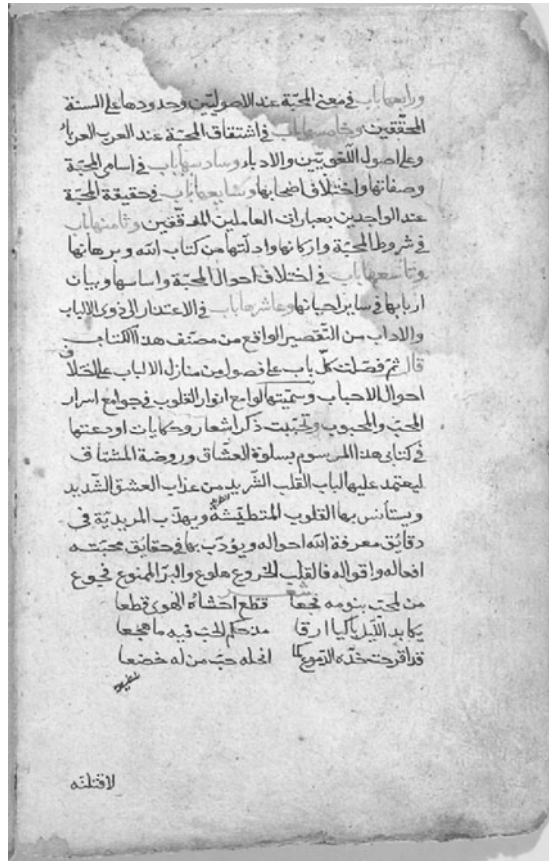 ورابعها باب في معنى المحبّة عند الاصوليّين وحدودها على السنة
المحقّقين وخامسها باب في اشتقاق المحبّة عند العرب العرباء
وعلى اصول اللّغويّين والادباء وسادسها باب في اسامى المحبّة
وصفاتها واختلاف اصحابها وسابعها باب في حقيقة المحبّة
عند الواجدين بعبارات العاملين المدقّقين وثامنها باب
في شروط المحبّة واركانها وادلّتها من كتاب الله وبرهانها
وتاسعها باب في اختلاف احوال المحبّة واساسها وبيان
اربابها في ساير احيانها وعاشرها باب في الاعتذار الى ذوى الالباب
والاداب من التّقصير الواقع من مصنّف هذا الكتاب
قال ثمّ فصّلت كلّ باب على فصول من منازل الالباب على اختلاف
احوال الاحباب وسمّيتها لوامع انوار القلوب في جوامع اسرار
المحبّ والمحبوب وتجنّبت ذكر اشعار وحكايات اودعتها
في كتابى هذا المرسوم بسلوة العشّاق وروضة المشتاق
ليعتمد عليها لباب القلب الشّريد من عذاب العشق الشّديد
ويستأنس بها القلوب المتطيّشة ويهذّب المريديّة في
دقايق معرفة الله احواله ويؤدّب بها في حقايق محبّته
افعاله واقواله فالقلب الخروع هلوع والبرّ الممنوع فجوع
شعر
من لمحبّ بنومه فجعا قطّع احشاه الهوى قطعا
يكابد اللّيل باكيا ارقا مذ حكم الحبّ فيه ما هجعا
قد اقرحت خدّه الدّموع كما انحله حبّ من له خضعا
لاقتلنّه